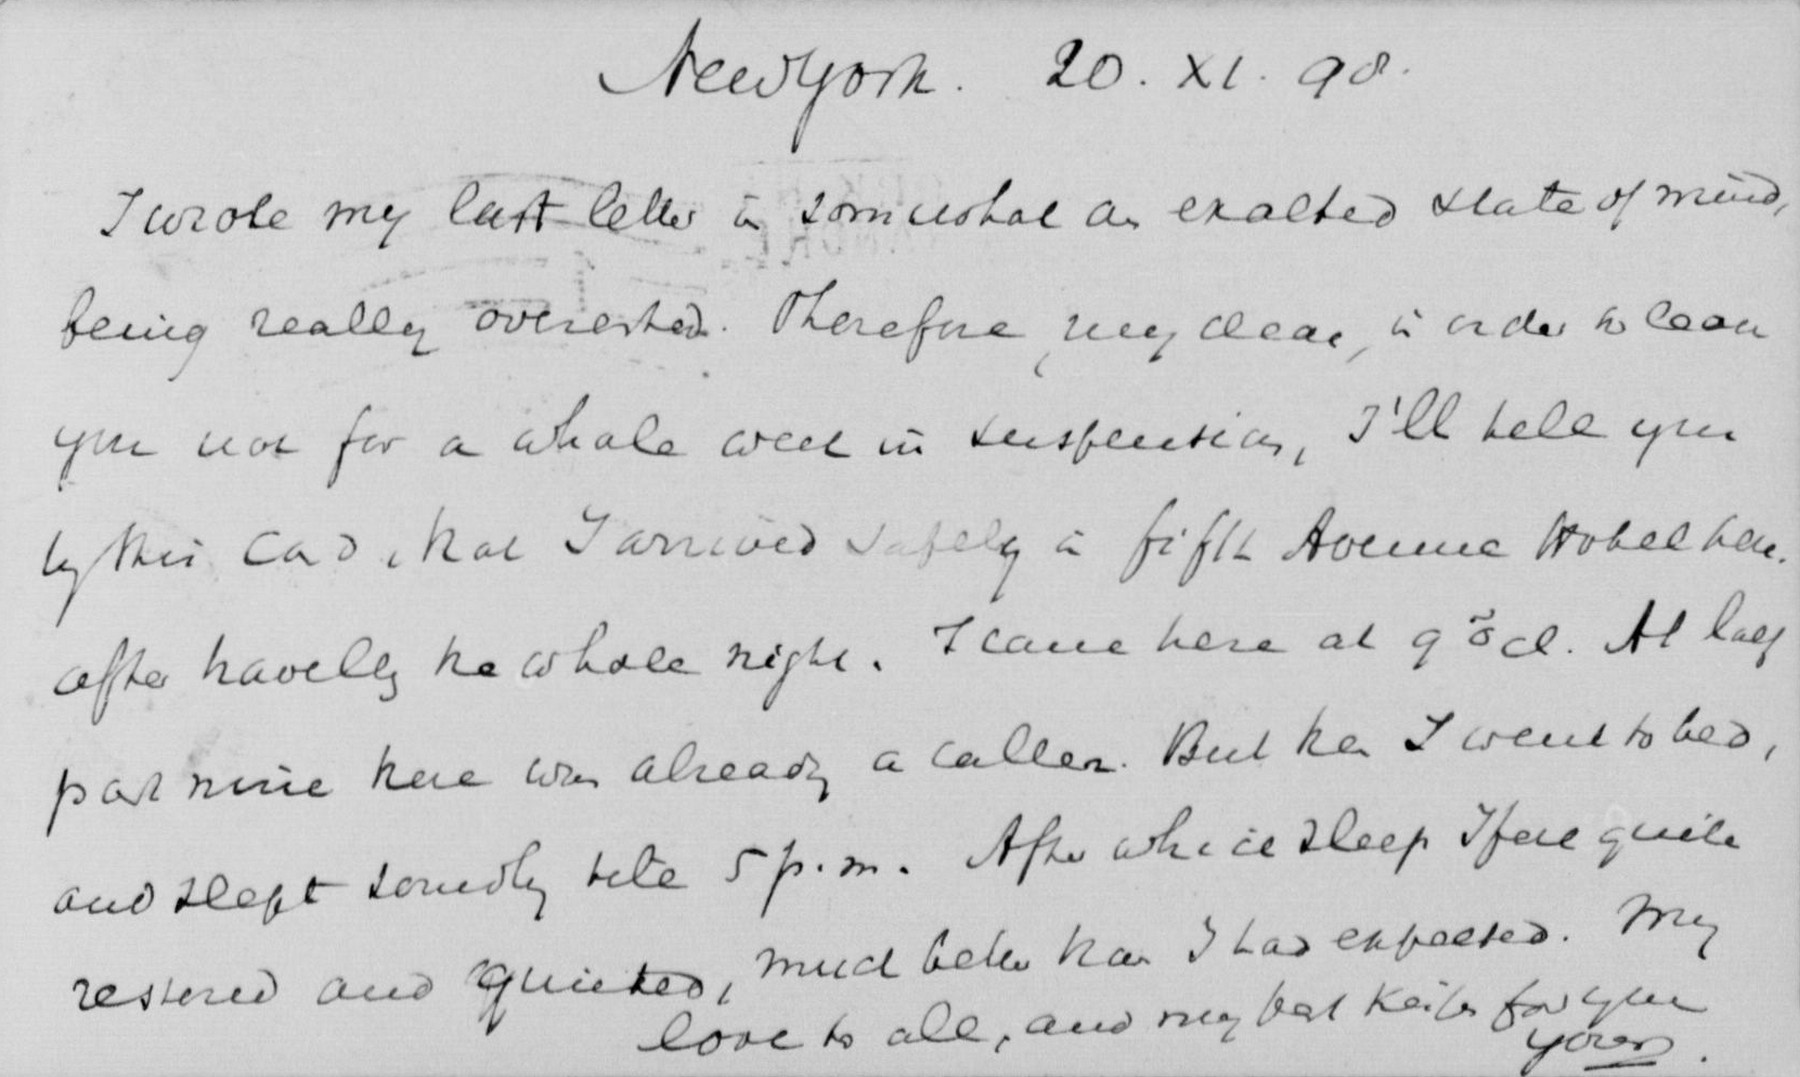 New York. 20. XI. 98.
I wrote my last letter in somewhat an exalted state of mind,
being really overexerted. Therefore, my dear, in order to leave
you not for a whole week in suspension, I'll tell you
by this card, that I arrived safely in fifth Avenue Hotel here.
after travelling the whole night. I came here at 9 o'cl. At half
past nine there was already a caller. But then I went to bed,
and slept soundly till 5 p.m. After which sleep I feel quite
restored and quieted, much better than I had expected. My
love to all, and my best for you
yours.